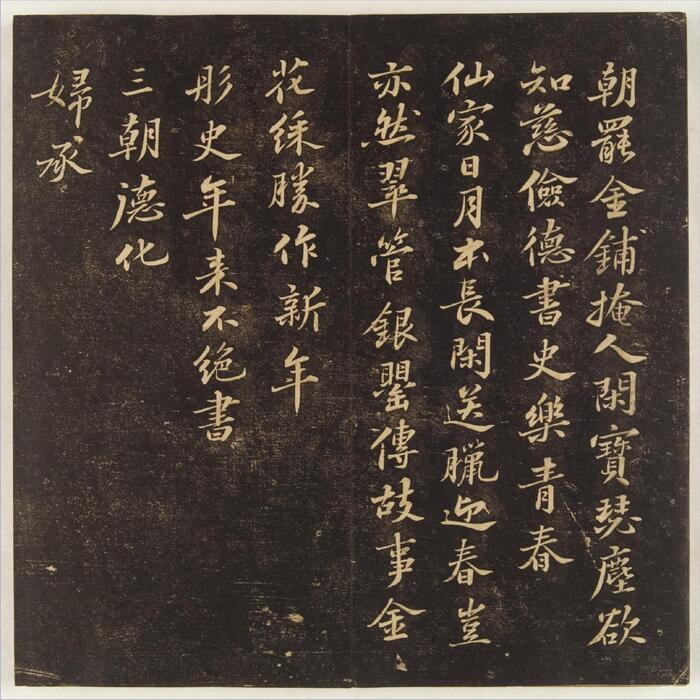 朝罷金鋪掩人閑寶瑟塵欲
知慈儉德書史樂青春
仙家日月本長閑送臘迎春豈
亦然翠管銀罌傳故事金
花綵勝作新年
彤史年来不絶書
三朝德化
婦承